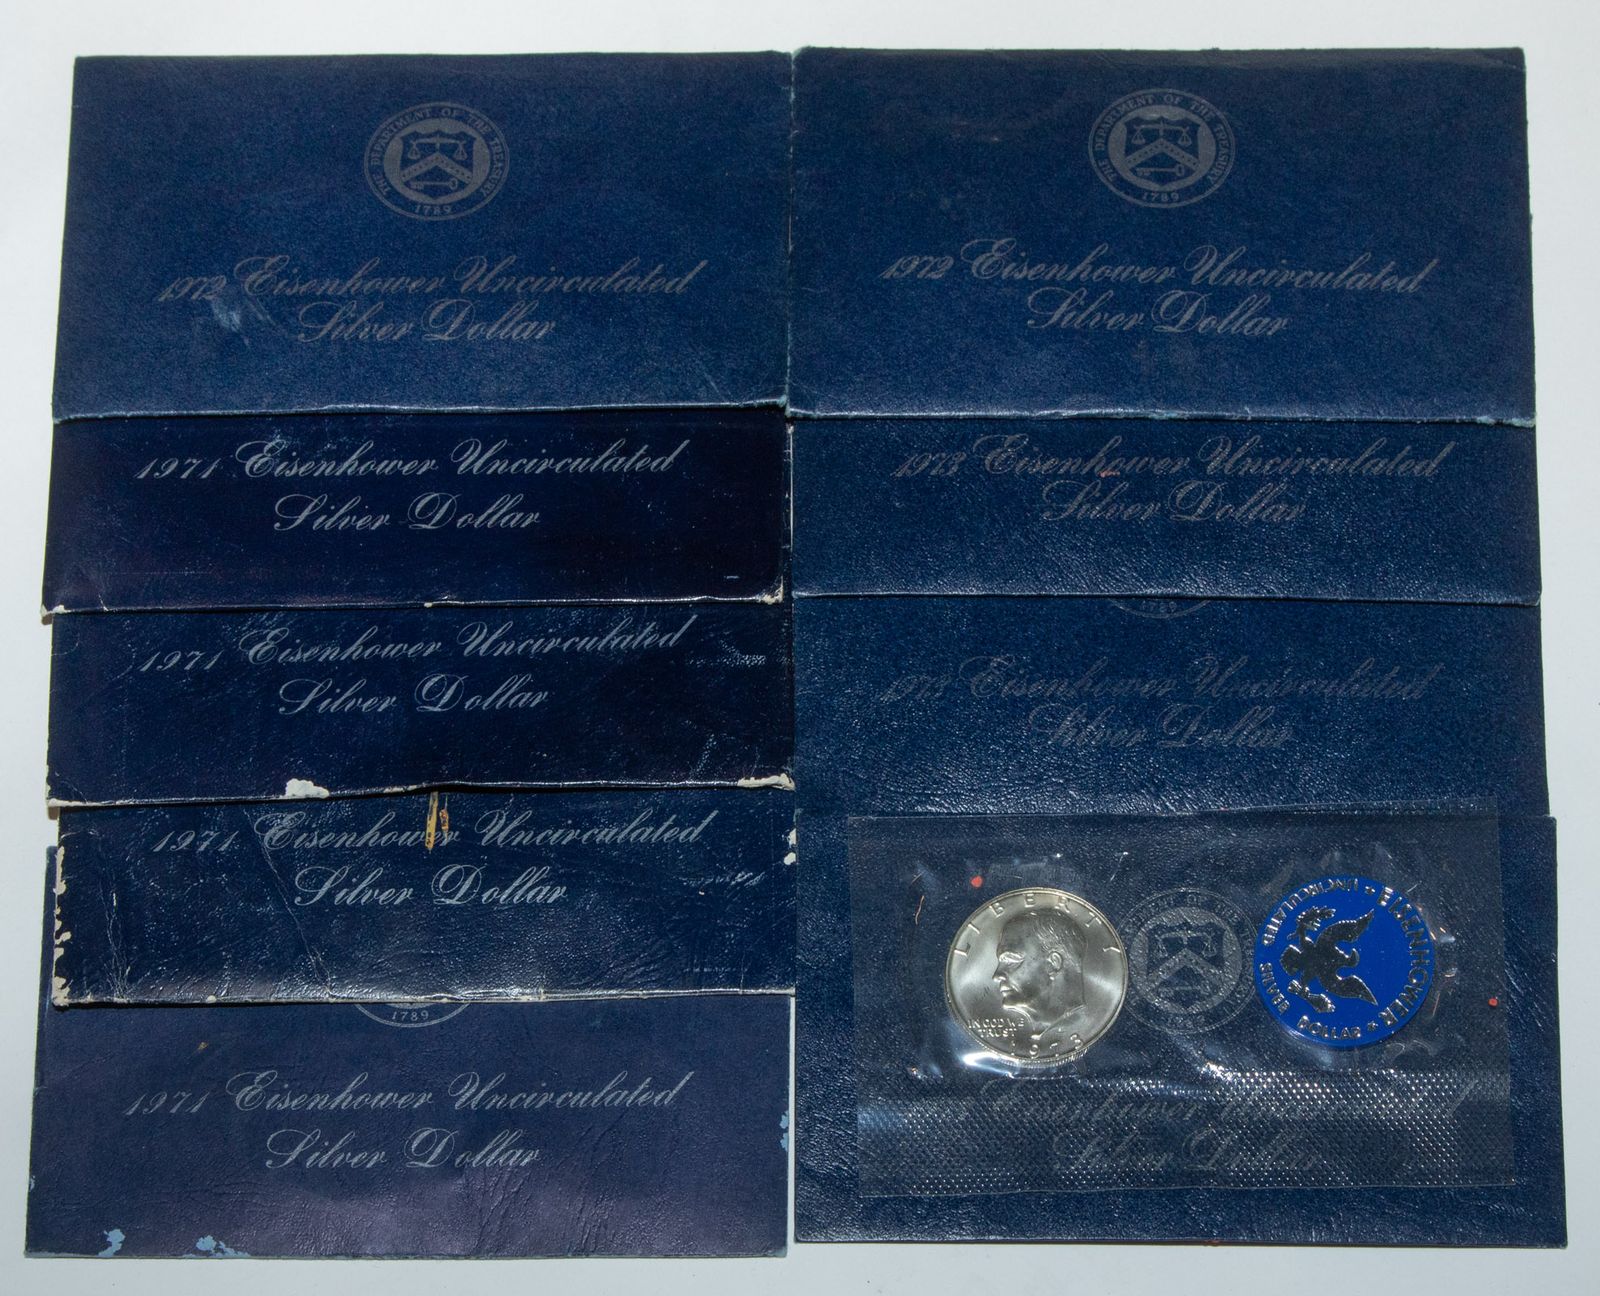 THE DEPARTMENT OF THE TREASURY
1789
1972 Eisenhower Uncirculated
Silver Dollar
1971 Eisenhower Uncirculated
Silver Dollar
1971 Eisenhower Uncirculated
Silver Dollar
1971 Eisenhower Uncirculated
Silver Dollar
1789
1971 Eisenhower Uncirculated
Silver Dollar
THE DEPARTMENT OF THE TREASURY
1789
1972 Eisenhower Uncirculated
Silver Dollar
1973 Eisenhower Uncirculated
Silver Dollar
1789
1973 Eisenhower Uncirculated
Silver Dollar
LIBERTY
IN GOD WE
TRUST
1973
EISENHOWER
UNCIRCULATED
SILVER DOLLAR
Eisenhower Uncirculated
Silver Dollar